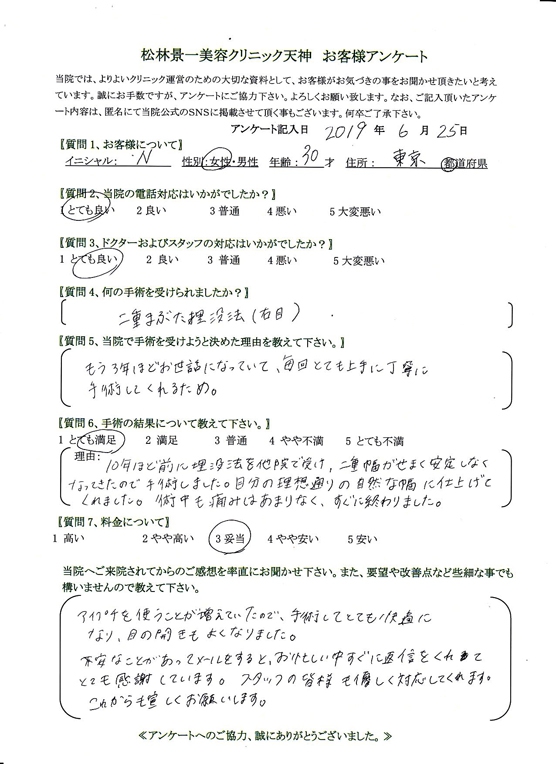 松林景一美容クリニック天神 お客様アンケート
当院では、よりよいクリニック運営のための大切な資料として、お客様がお気づきの事をお聞かせ頂きたいと考え
ています。誠にお手数ですが、アンケートにご協力下さい。よろしくお願い致します。なお、ご記入頂いたアンケ
ート内容は、匿名にて当院公式のSNSに掲載させて頂く事もございます。何卒ご了承下さい。
アンケート記入日 2019 年 6 月 25日
【質問1、お客様について】
イニシャル: N 性別:女性・男性 年齢:30才 住所: 東京 都道府県
【質問2、当院の電話対応はいかがでしたか?】
1 とても良い 2 良い 3 普通 4 悪い 5 大変悪い
【質問3、ドクターおよびスタッフの対応はいかがでしたか?】
1 とても良い 2 良い 3 普通 4 悪い 5 大変悪い
【質問4、何の手術を受けられましたか?】
二重まぶた埋没法(右目)
【質問5、当院で手術を受けようと決めた理由を教えて下さい。】
もう3年ほどお世話になっていて、毎回とても上手に丁寧に
手術してくれるため。
【質問6、手術の結果について教えて下さい。】
1 とても満足 2 満足 3 普通 4 やや不満 5 とても不満
理由:
10年ほど前に埋没法を他院で受け、二重幅がせまく安定しなく
なってきたので手術しました。自分の理想通りの自然な幅に仕上げて
くれました。術中も痛みはあまりなく、すぐに終わりました。
【質問7、料金について】
1 高い 2 やや高い 3 妥当 4 やや安い 5 安い
当院へご来院されてからのご感想を率直にお聞かせ下さい。また、要望や改善点など些細な事でも
構いませんので教えて下さい。
アイプチを使うことが増えていたので、手術してとても快適に
なり、目の開きもよくなりました。
不安なことがあってメールをすると、お忙しい中すぐに返信をくれて
とても感謝しています。スタッフの皆様も優しく対応してくれます。
これからも宜しくお願いします。
≪アンケートへのご協力、誠にありがとうございました。≫